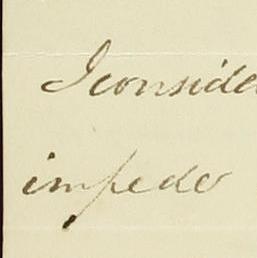 I conside
impede